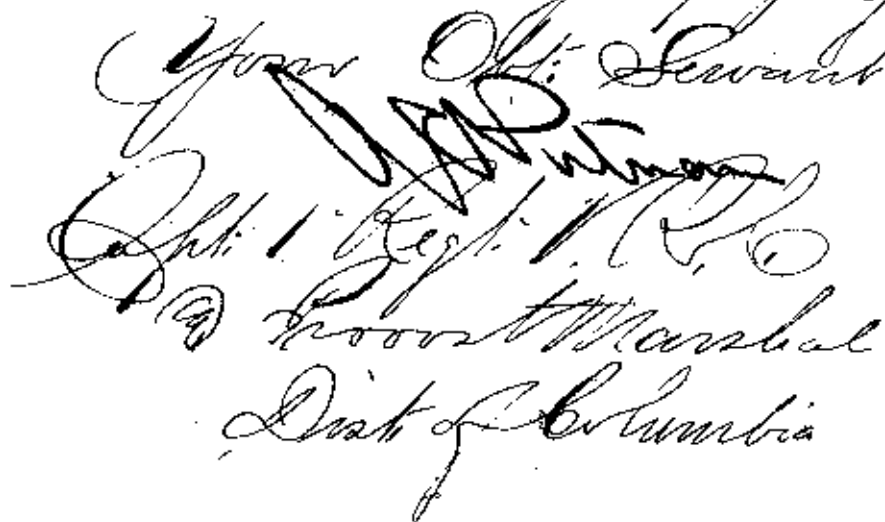 Your Obt. Servant
Putnam
Capt. 1. Regt. V. R. C.
& Provost Marshal
Dist. of Columbia